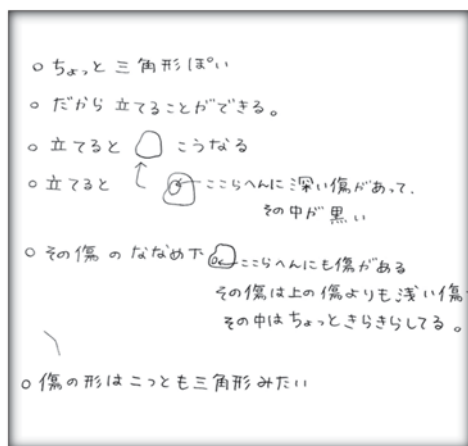 ○ ちょっと三角形ぽい
○ だから立てることができる。
○ 立てると こうなる
○ 立てると ここらへんに深い傷があって、
その中が黒い
○ その傷のななめ下 ここらへんにも傷がある
その傷は上の傷よりも浅い傷
その中はちょっときらきらしてる。
○ 傷の形はこっとも三角形みたい